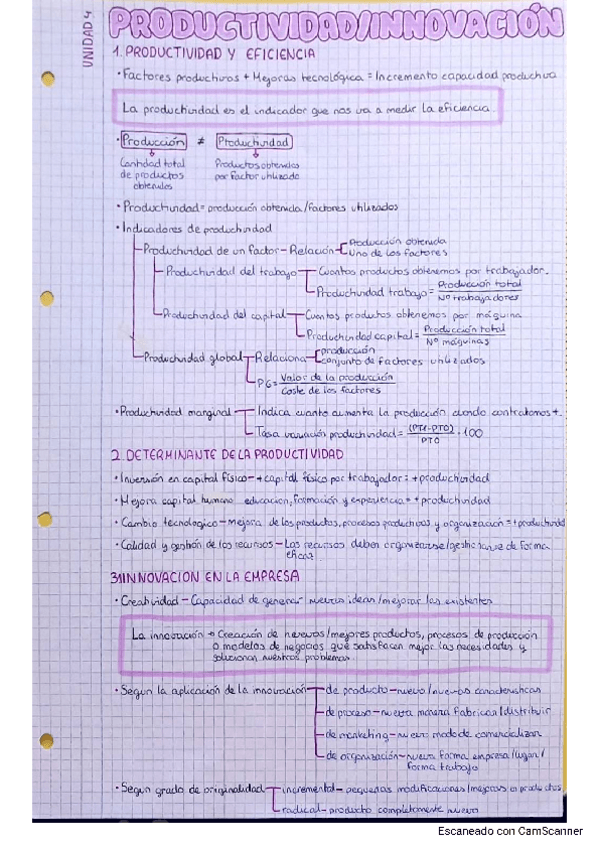 UNIDAD 4
PRODUCTIVIDAD/INNOVACIÓN
1. PRODUCTIVIDAD Y EFICIENCIA
· Factores productivos + Mejoras tecnológica = Incremento capacidad productiva
La productividad es el indicador que nos va a medir la eficiencia.
· Producción ≠ Productividad
Cantidad total de productos obtenidos
Productos obtenidos por factor utilizado
· Productividad = producción obtenida/factores utilizados
· Indicadores de productividad
Productividad de un factor - Relación
Producción obtenida
Uno de los factores
Productividad del trabajo
Cuantos productos obtenemos por trabajador.
Productividad trabajo = Producción total / Nº trabajadores
Productividad del capital
Cuantos productos obtenemos por máquina
Productividad capital = Producción total / Nº máquinas
Productividad global
Relaciona
producción
conjunto de factores utilizados
PG = Valor de la producción / Coste de los factores
· Productividad marginal
Indica cuanto aumenta la producción cuando contratamos +.
Tasa variación productividad = (PT1-PT0) / PT0 · 100
2. DETERMINANTE DE LA PRODUCTIVIDAD
· Inversión en capital físico - + capital físico por trabajador = + productividad
· Mejora capital humano educacion, formación y experiencia = + productividad
· Cambio tecnologico - mejora de los productos, procesos productivos y organización = + productividad
· Calidad y gestión de los recursos - Los recursos deben organizarse/gestionarse de forma
eficaz
3. INNOVACION EN LA EMPRESA
· Creatividad - Capacidad de generar nuevas ideas/mejorar las existentes
La innovación → Creación de nuevos/mejores productos, procesos de producción
o modelos de negocios que satisfacen mejor las necesidades y
solucionan nuestros problemas.
· Segun la aplicación de la innovación
de producto - nuevo/nuevas caracteristicas
de proceso - nueva manera fabricar/distribuir
de marketing - nuevo modo de comercializar
de organización - nueva forma empresa/lugar/
forma trabajo
· Segun grado de originalidad
incremental - pequeñas modificaciones/mejoras a productos
radical - producto completamente nuevo
Escaneado con CamScanner